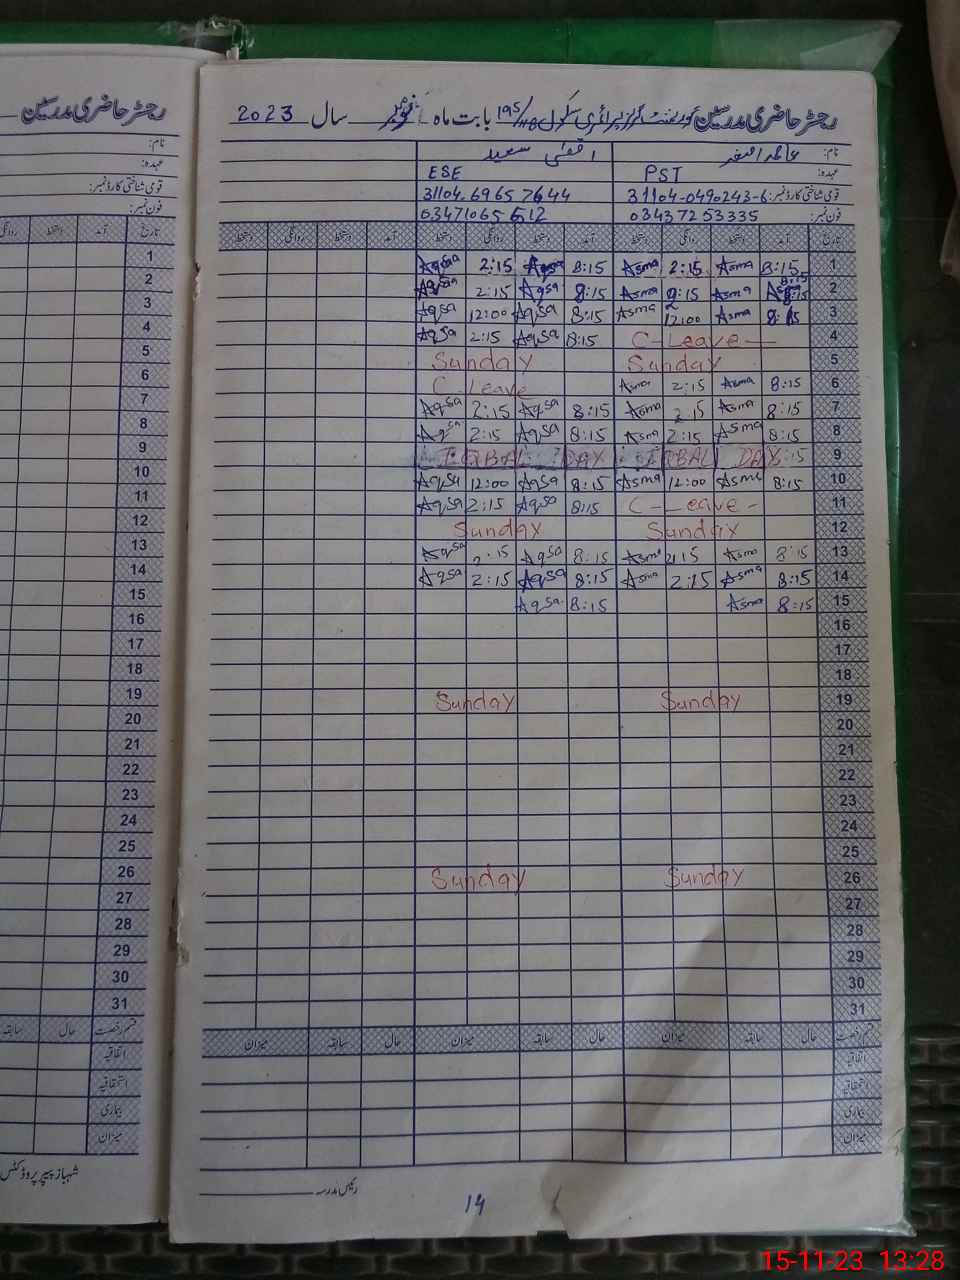 رجسٹر حاضری مدرسین
نام:
عہدہ:
قومی شناختی کارڈ نمبر:
فون نمبر:
تاریخ آمد دستخط روانگی
1
2
3
4
5
6
7
8
9
10
11
12
13
14
15
16
17
18
19
20
21
22
23
24
25
26
27
28
29
30
31
قسم رخصت حال سابقہ
اتفاقیہ
استحقاقیہ
بیماری
میزان
شہباز پیپر پروڈکٹس
رجسٹر حاضری مدرسین گورنمنٹ گرلز پرائمری سکول 195/ بابت ماہ نومبر سال 2023
نام: عاصمہ اصغر اقصیٰ سعید
عہدہ: PST ESE
قومی شناختی کارڈ نمبر: 31104-0490243-6 31104.6965 7644
فون نمبر: 03437253335 03471065 612
تاریخ آمد دستخط روانگی دستخط آمد دستخط روانگی دستخط آمد دستخط روانگی دستخط
1 8:15 Asma 2:15 Asma 8:15 Aqsa 2:15 Aqsa
2 8:15 Asma 2:15 Asma 8:15 Aqsa 2:15 Aqsa
3 8:15 Asma 12:00 Asma 8:15 Aqsa 12:00 Aqsa
4 C-Leave- 8:15 Aqsa 2:15 Aqsa
5 Sunday Sunday
6 8:15 Asma 2:15 Asma C-Leave
7 8:15 Asma 2:15 Asma 8:15 Aqsa 2:15 Aqsa
8 8:15 Asma 2:15 Asma 8:15 Aqsa 2:15 Aqsa
9 IQBAL DAY IQBAL DAY
10 8:15 Asma 12:00 Asma 8:15 Aqsa 12:00 Aqsa
11 C-Leave- 8:15 Aqsa 2:15 Aqsa
12 Sunday Sunday
13 8:15 Asma 2:15 Asma 8:15 Aqsa 2:15 Aqsa
14 8:15 Asma 2:15 Asma 8:15 Aqsa 2:15 Aqsa
15 8:15 Asma 8:15 Aqsa
16
17
18
19 Sunday Sunday
20
21
22
23
24
25
26 Sunday Sunday
27
28
29
30
31
قسم رخصت حال سابقہ میزان حال سابقہ میزان حال سابقہ میزان
اتفاقیہ
استحقاقیہ
بیماری
میزان
رئیس مدرسہ
14
15-11-23 13:28